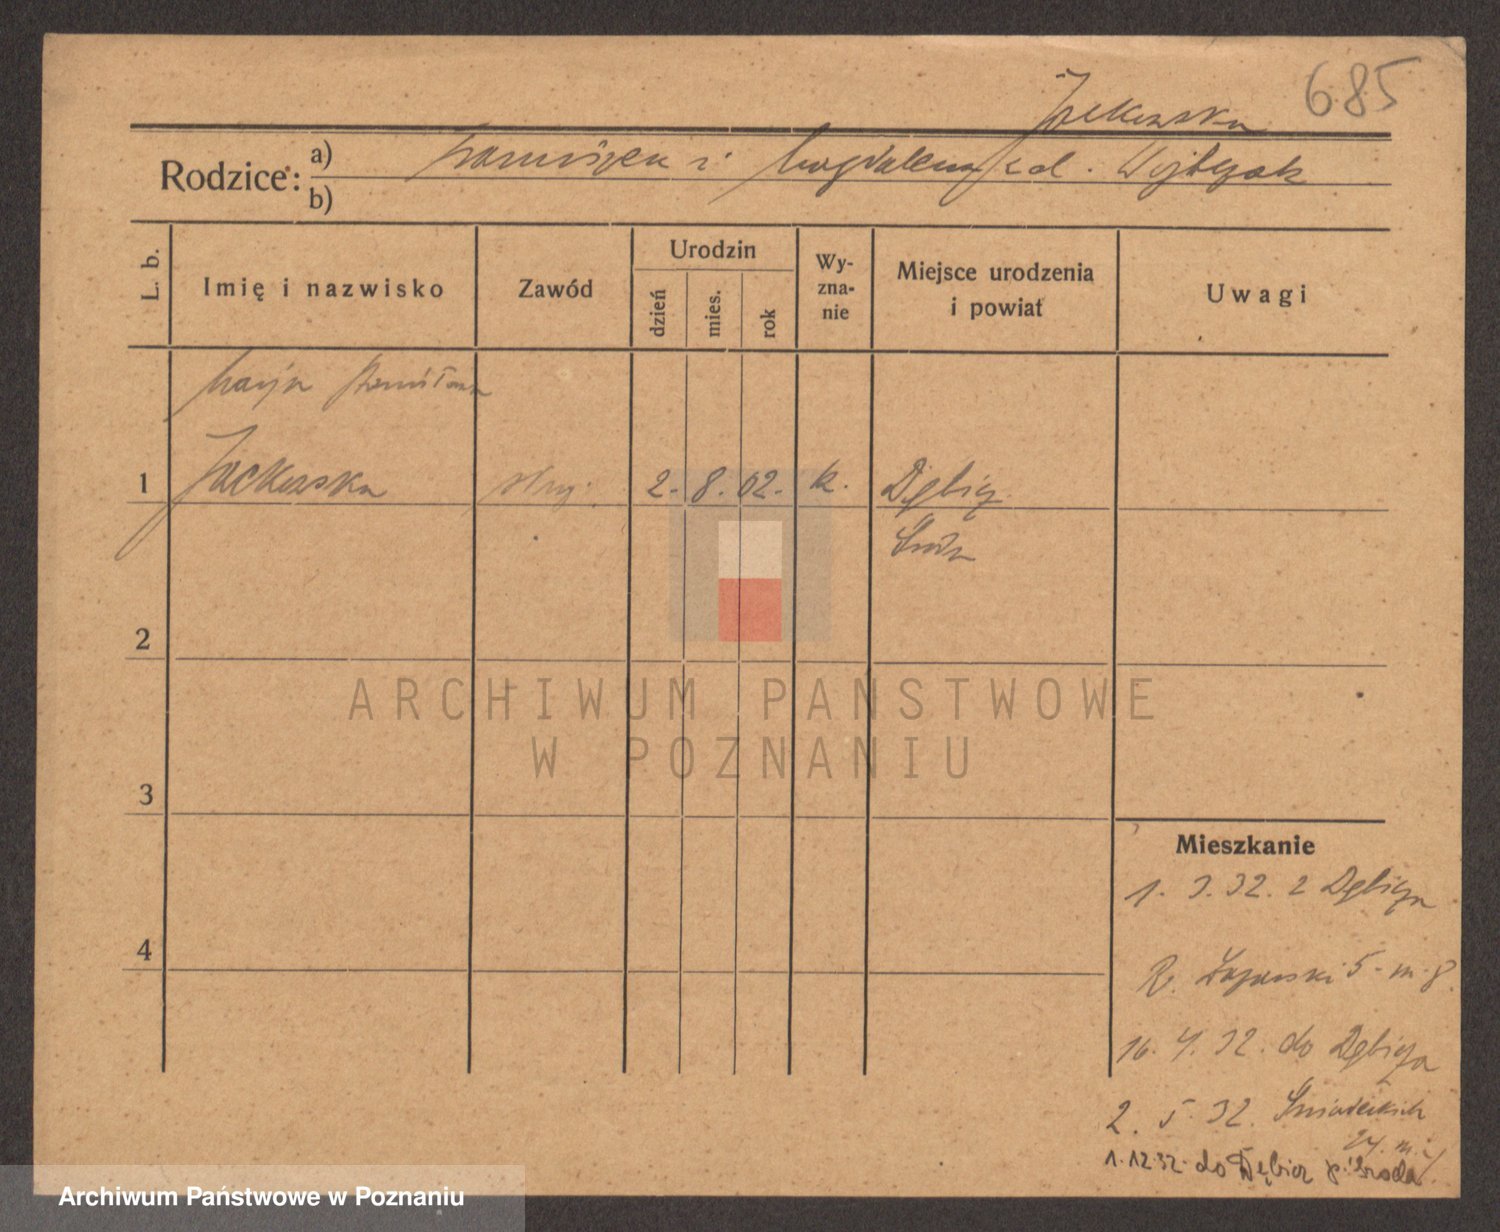 685
Jackowska
Rodzice: a) Franciszek i Magdalena zd. Wojtczak
b)
L. b.
Imię i nazwisko
Zawód
Urodzin
dzień
mies.
rok
Wy-
zna-
nie
Miejsce urodzenia
i powiat
Uwagi
Marja
1 Jackowska służ. 2. 8. 02. k. Dębicz
Środa
2
3
4
Mieszkanie
1. 3. 32. z Dębicza
R. Łazarski 5. m. 8.
16. 4. 32. do Dębicza
2. 5. 32. Śniadeckich
27. m.
1.12.32. do Dębicz p. Środa
ARCHIWUM PAŃSTWOWE
W POZNANIU
Archiwum Państwowe w Poznaniu